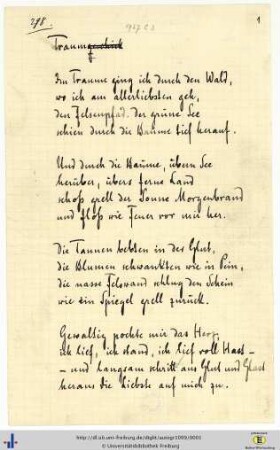 298.
1
Traumgesicht
Im Traume ging ich durch den Wald,
wo ich am allerliebsten geh,
den Felsenpfad, der grüne See
schien durch die Bäume tief herauf.
Und durch die Bäume, übern See
herüber, übers ferne Land
schoß grell der Sonne Morgenbrand
und floß wie Feuer vor mir her.
Die Tannen bebten in der Glut,
die Blumen schwankten wie in Pein,
die nasse Felswand schlug den Schein
wie ein Spiegel grell zurück.
Gewaltig pochte mir das Herz,
ich lief, ich stand, ich lief voll Hast –
– und langsam schritt aus Glut und Glast
heraus die Liebste auf mich zu.
http://dl.ub.uni-freiburg.de/diglit/
© Universitätsbibliothek Freiburg